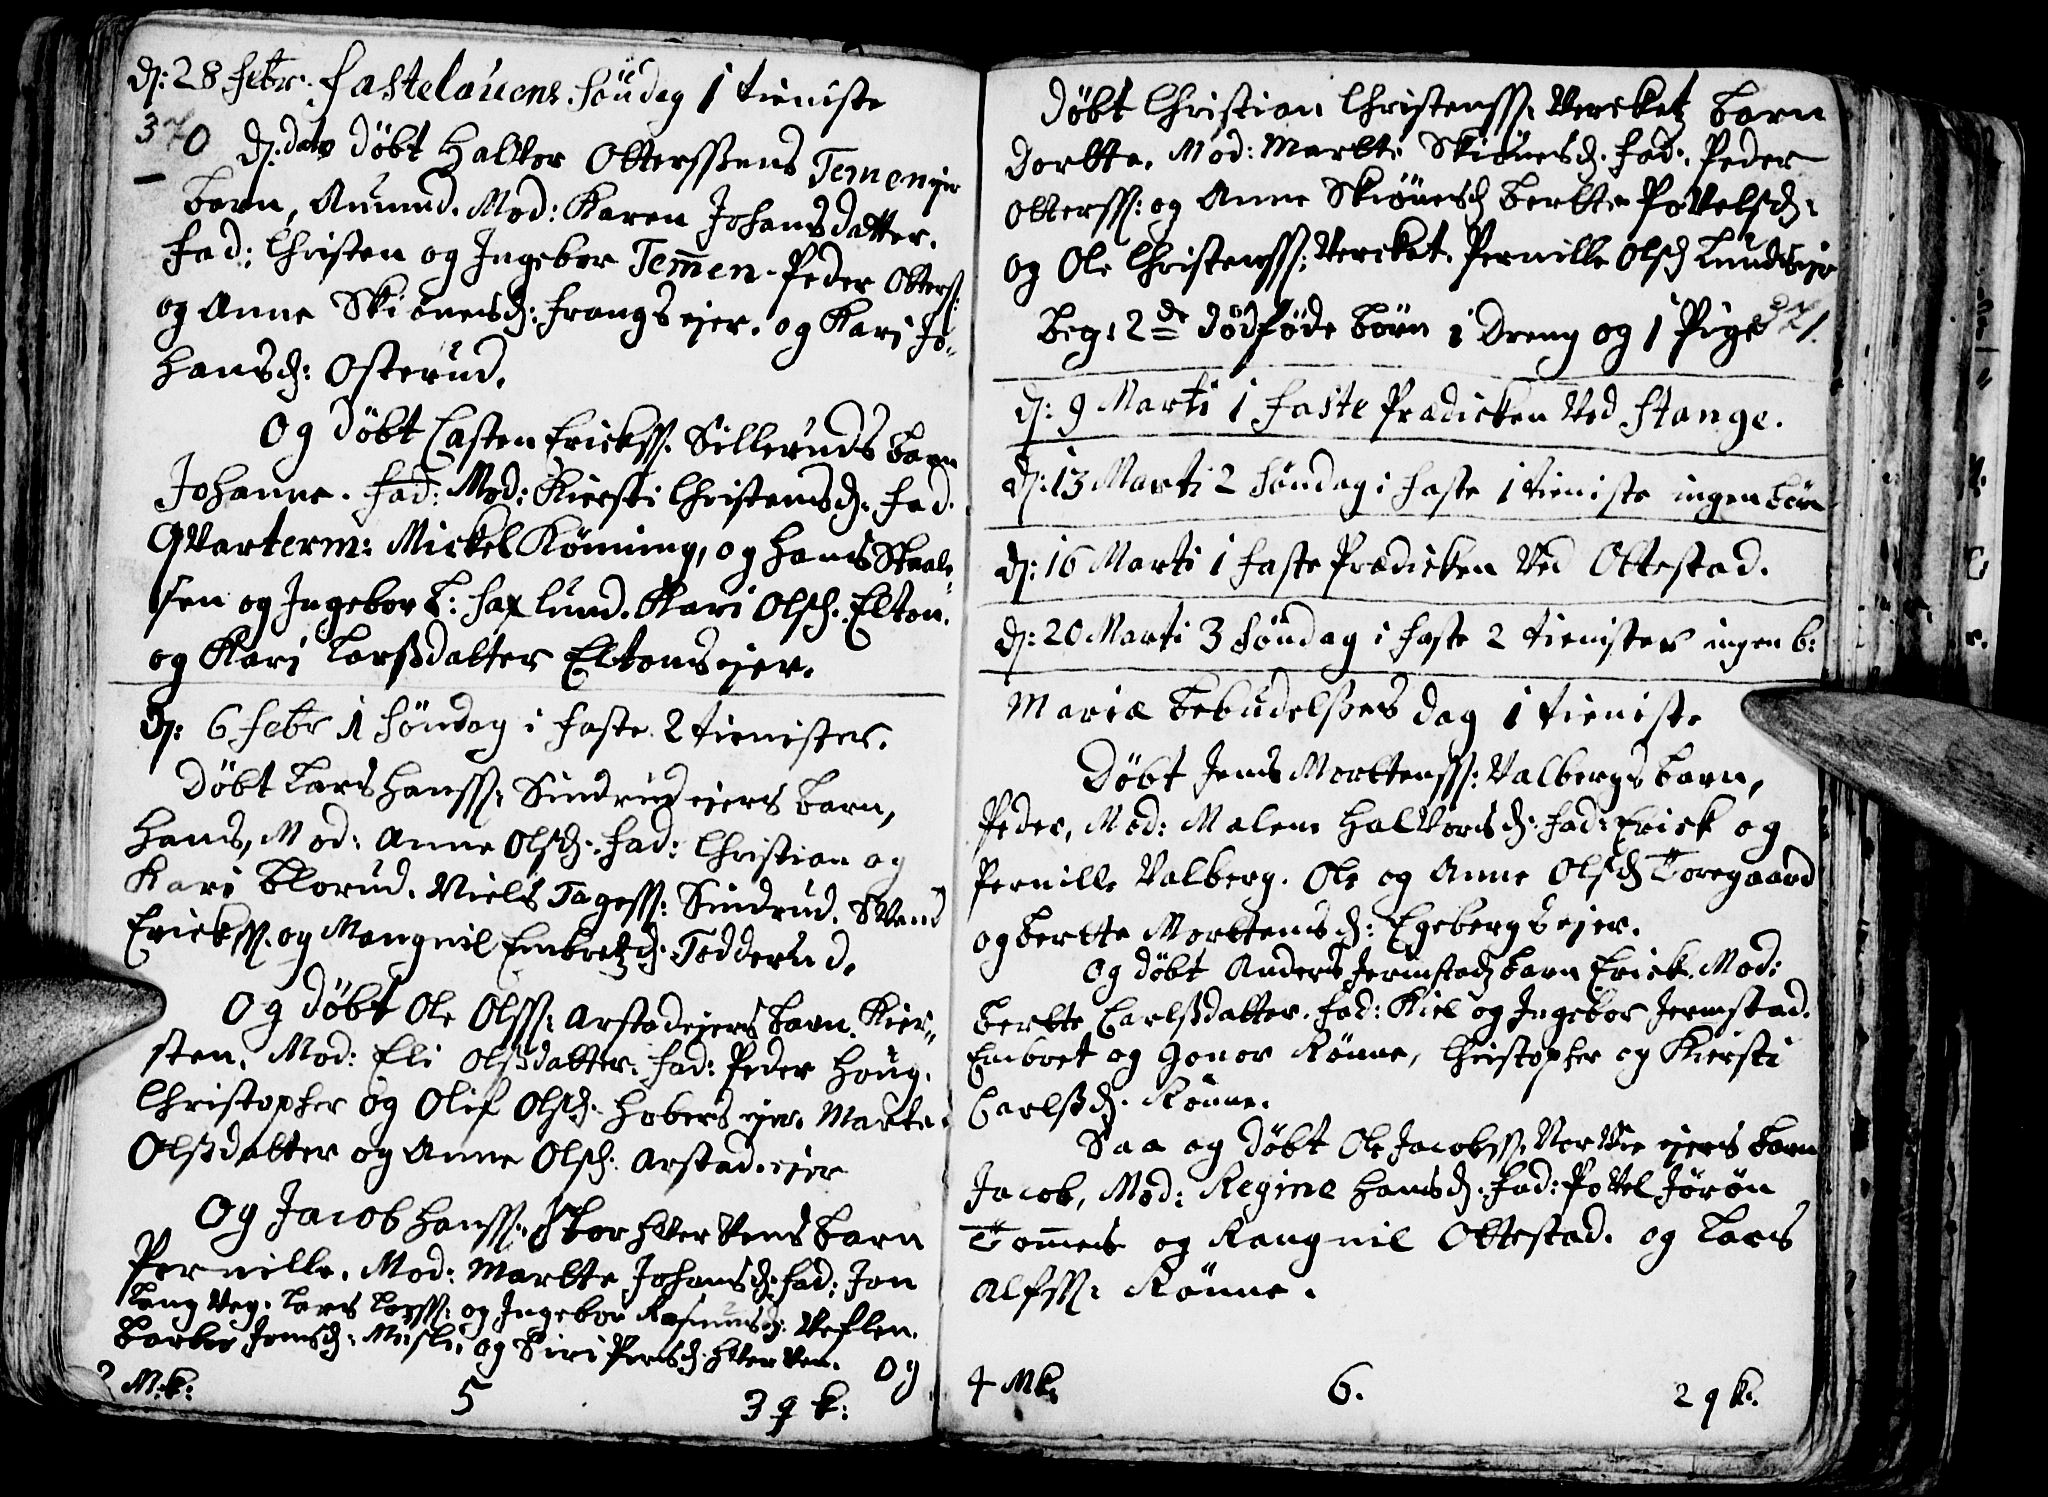 d: 28 Febr. Fastelauens Søndag 1 tieniste
370
d: dato døbt Haltor Otterssens Temen ejr
barn, Aumund. Mod: Karen Johansdatter.
Fad: Christen og Ingebor Temen. Peder Otters:
og Anne Skiønesd: Frangs ejer. og Kari Jo-
hansd: Osterud.
Og døbt Casten Erickss. Sillerunds barn
Johanne. Fad: Mod: Kiersti Christensd. Fad.
Qvarterm: Mickel Kønning, og Hans Skaale
sen og Ingebor B: Faxlund. Kari Olsd. Elton.
og Kari Larssdatter Eltons ejer.
d: 6 Febr 1 Søndag i Faste 2 tienister.
Døbt Lars Hanss: Sindrud ejers barn,
Hans, Mod: Anne Olsd. Fad: Christian og
Kari Blorud. Niels Tagess: Sindrud. Svend
Erickss. og Mangnil Embretzd. Todderud.
Og døbt Ole Olss: Arstadejers barn. Kier-
sten. Mod: Eli Olssdatter. Fad: Peder Houg.
Christopher og Olif Olsd. Hobers ejer. Marte
Olssdatter og Anne Olsd. Arstad. ejer
Og Jacob Hanss. Stor Hvervens barn
Pernille. Mod: Martte Johansd. Fad: Jon
Lang Veg. Lars Larss: og Ingebor Rasmusd. Veflen.
Barbro Jensd: Misli, og Siri Persd. Hverven. Og
2 Mk: 5 3 q k:
Døbt Christian Christenss: Vercket barn
Dortte. Mod: Martte Skiønesd. Fad: Peder
Otterss: og Anne Skiønesd Bertte Povelsd:
og Ole Christenss: Vercket. Pernille Olsd Lundsejr
Beg: 2de dødføde børn 1 Dreng og 1 Pige 371.
d: 9 Marti 1 Faste Prædicken Ved Stange.
d: 13 Marti 2 Søndag i Faste 1 tieniste ingen børn
d: 16 Marti 1 Faste Prædicken Ved Ottestad.
d: 20 Marti 3 Søndag i Faste 2 tienister ingen b:
Mariæ Bebudelses dag 1 tieniste
Døbt Jens Mortenss: Valbergs barn,
Peder, Mod: Malene Halvorsd. Fad: Erick og
Pernille Valberg. Ole og Anne Olsd Toregaard
og Bertte Mortensd: Egebergs ejer.
Og døbt Anders Jermstadz barn Erick. Mod:
Bertte Carlssdatter. Fad: Kiel og Ingebor Jermstad.
Embret og Gonor Rønne, Christopher og Kiersti
Carlssd. Rønne.
Saa og døbt Ole Jacobss. Ver Vie ejers barn
Jacob, Mod: Regine Hansd. Fad: Povel Jørøn
Tomes og Rangnil Ottestad. og Lars
Alfss: Rønne.
4 Mk. 6. 2 q k.